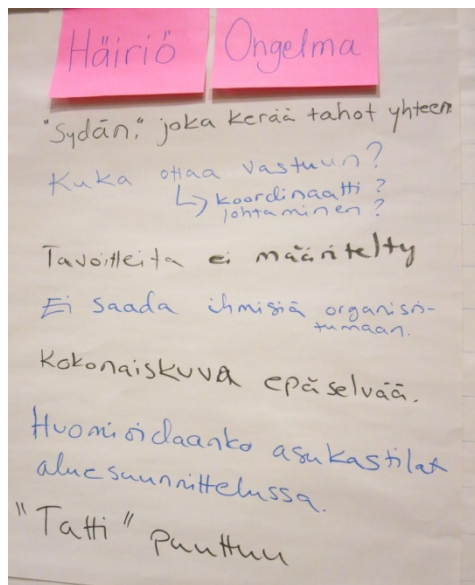 Häiriö Ongelma
"Sydän," joka kerää tahot yhteen
Kuka ottaa vastuun?
↳ koordinaatti?
johtaminen?
Tavoitteita ei määritelty
Ei saada ihmisiä organisoi-
tumaan.
Kokonaiskuva epäselvää.
Huomioidaanko asukastilat
aluesuunnittelussa.
"Tatti" puuttuu